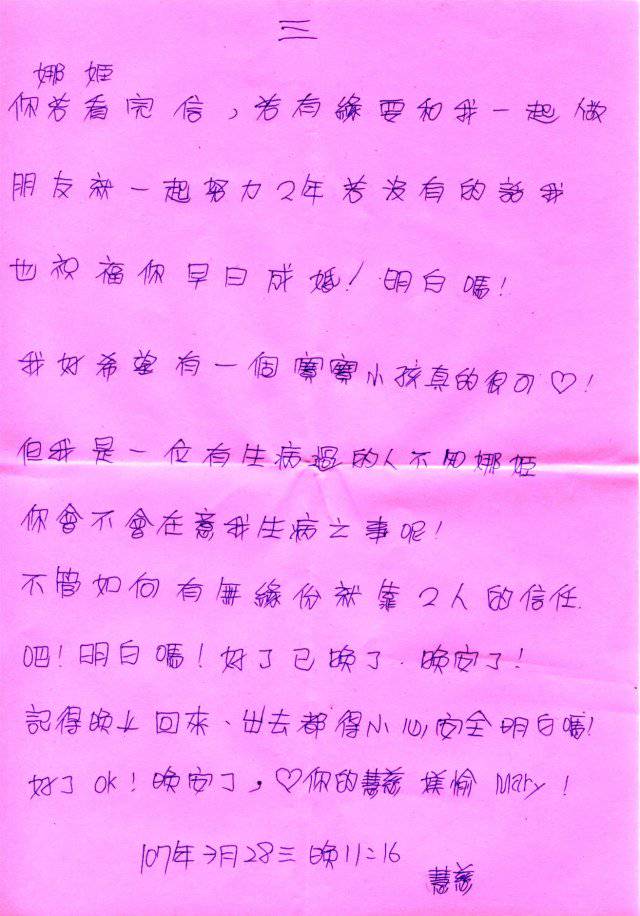 三
娜姬
你若看完信,若有緣要和我一起做
朋友就一起努力2年若沒有的話我
也祝福你早日成婚!明白嗎!
我好希望有一個寶寶小孩真的很可♡!
但我是一位有生病過的人不知娜姬
你會不會在意我生病之事呢!
不管如何有無緣份就靠2人的信任
吧!明白嗎!好了已晚了.晚安了!
記得晚上回來、出去都得小心安全明白嗎!
好了ok!晚安了,♡你的慧慈 愉 Mary!
107年3月28三晚11:16
慧慈